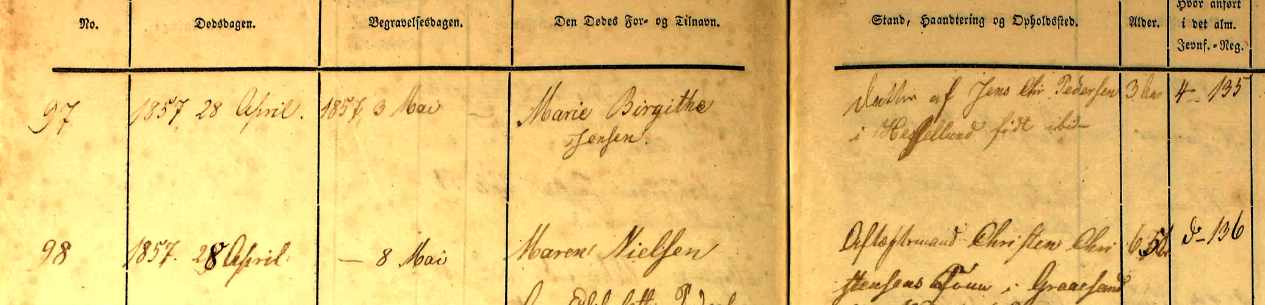 No. Dødsdagen. Begravelsesdagen. Den Dødes For- og Tilnavn. Stand, Haandtering og Opholdssted. Alder. Hvor anført
i det alm.
Jevnf.-Reg.
97 1857. 28 April. 1857, 3 Mai — Marie Birgithe Datter af Jens Chr Pedersen 3 Aar 4 - 135
Jensen. i Hessellund født ibid-
98 1857. 28 April. — 8 Mai Maren Nielsen Aftægtsmand Christen Chri 65 d- 136
stensens i Graaesand